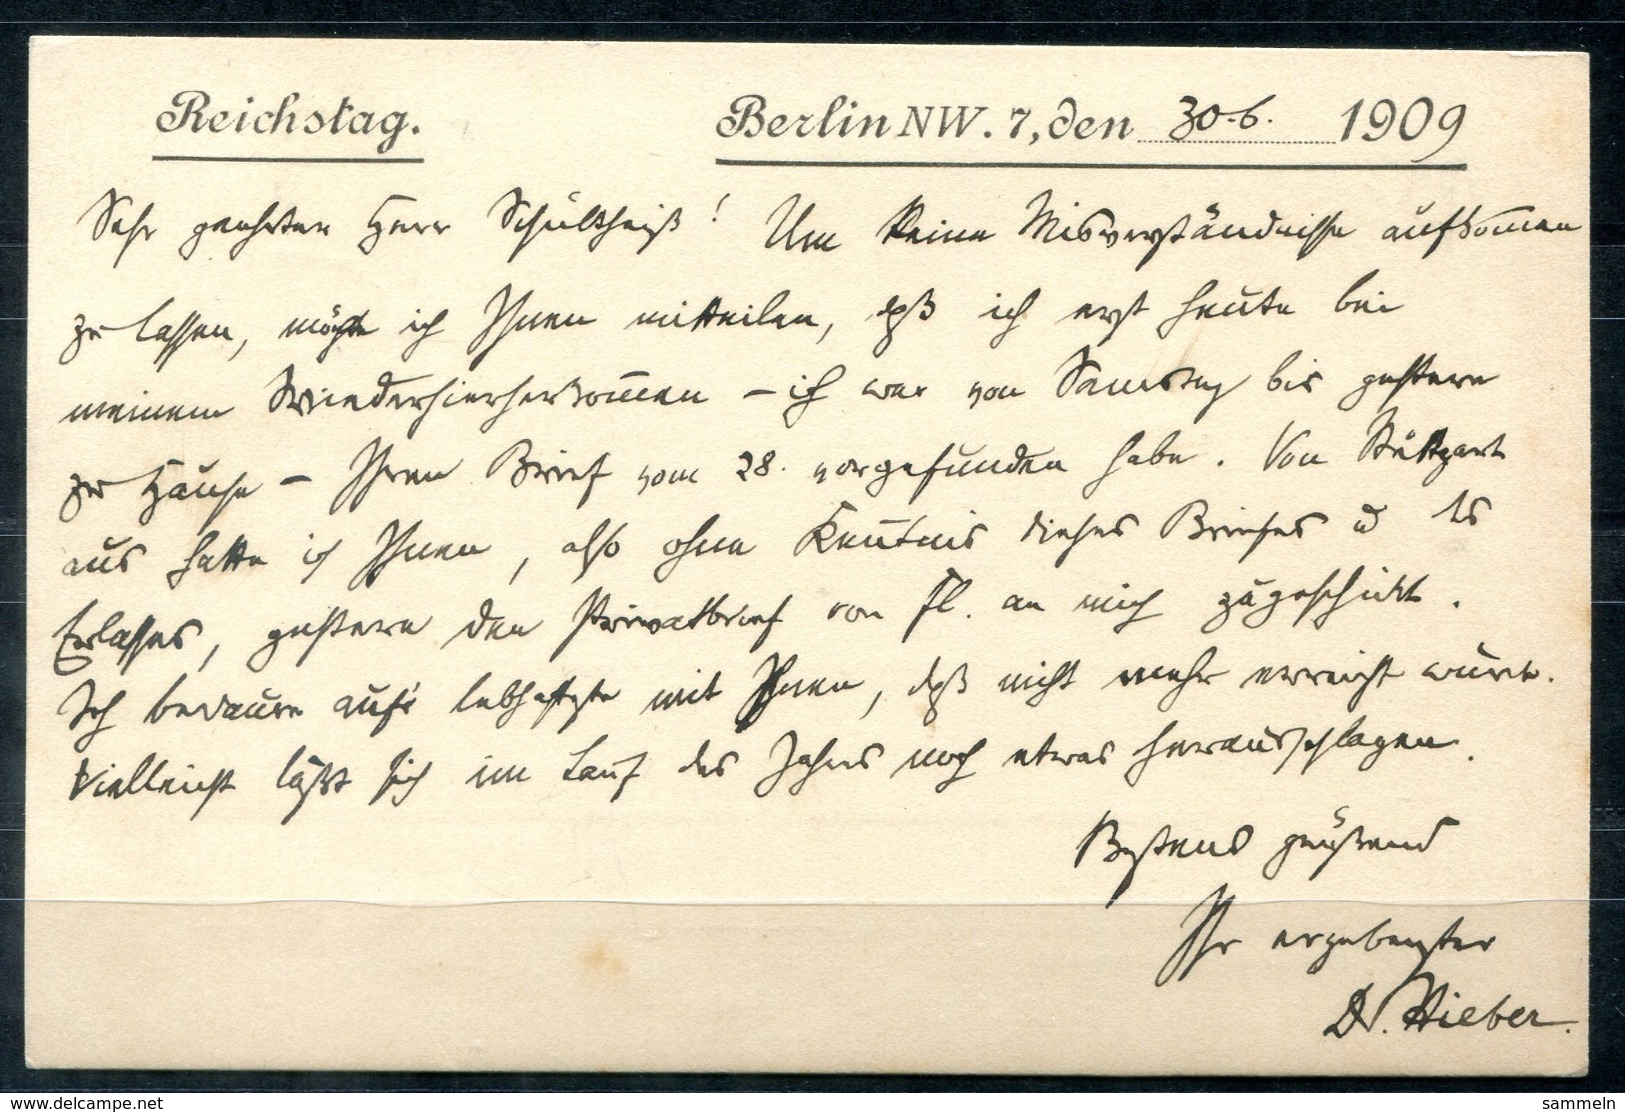 Reichstag. Berlin NW. 7, den 30.6. 1909
Sehr geehrter Herr Schultheiß! Um keine Misverständnisse aufkom̄en
zu lassen, möchte ich Ihnen mitteilen, daß ich erst heute bei
meinem Wiederhierherkom̄en – ich war von Samstag bis gestern
zu Hause – Ihren Brief vom 28. vorgefunden habe. Von Stuttgart
aus hatte ich Ihnen, also ohne Ken̄tnis dieses Briefes u ds
Erlasses, gestern den Privatbrief von Fl. an mich zugeschickt.
Ich bedaure aufs lebhafteste mit Ihnen, daß nicht mehr erreicht wurde.
Vielleicht läßt sich im Lauf des Jahres noch etwas herausschlagen.
Bestens grüßend
Ihr ergebenster
Dr. Hieber.
www.delcampe.net
sammeln